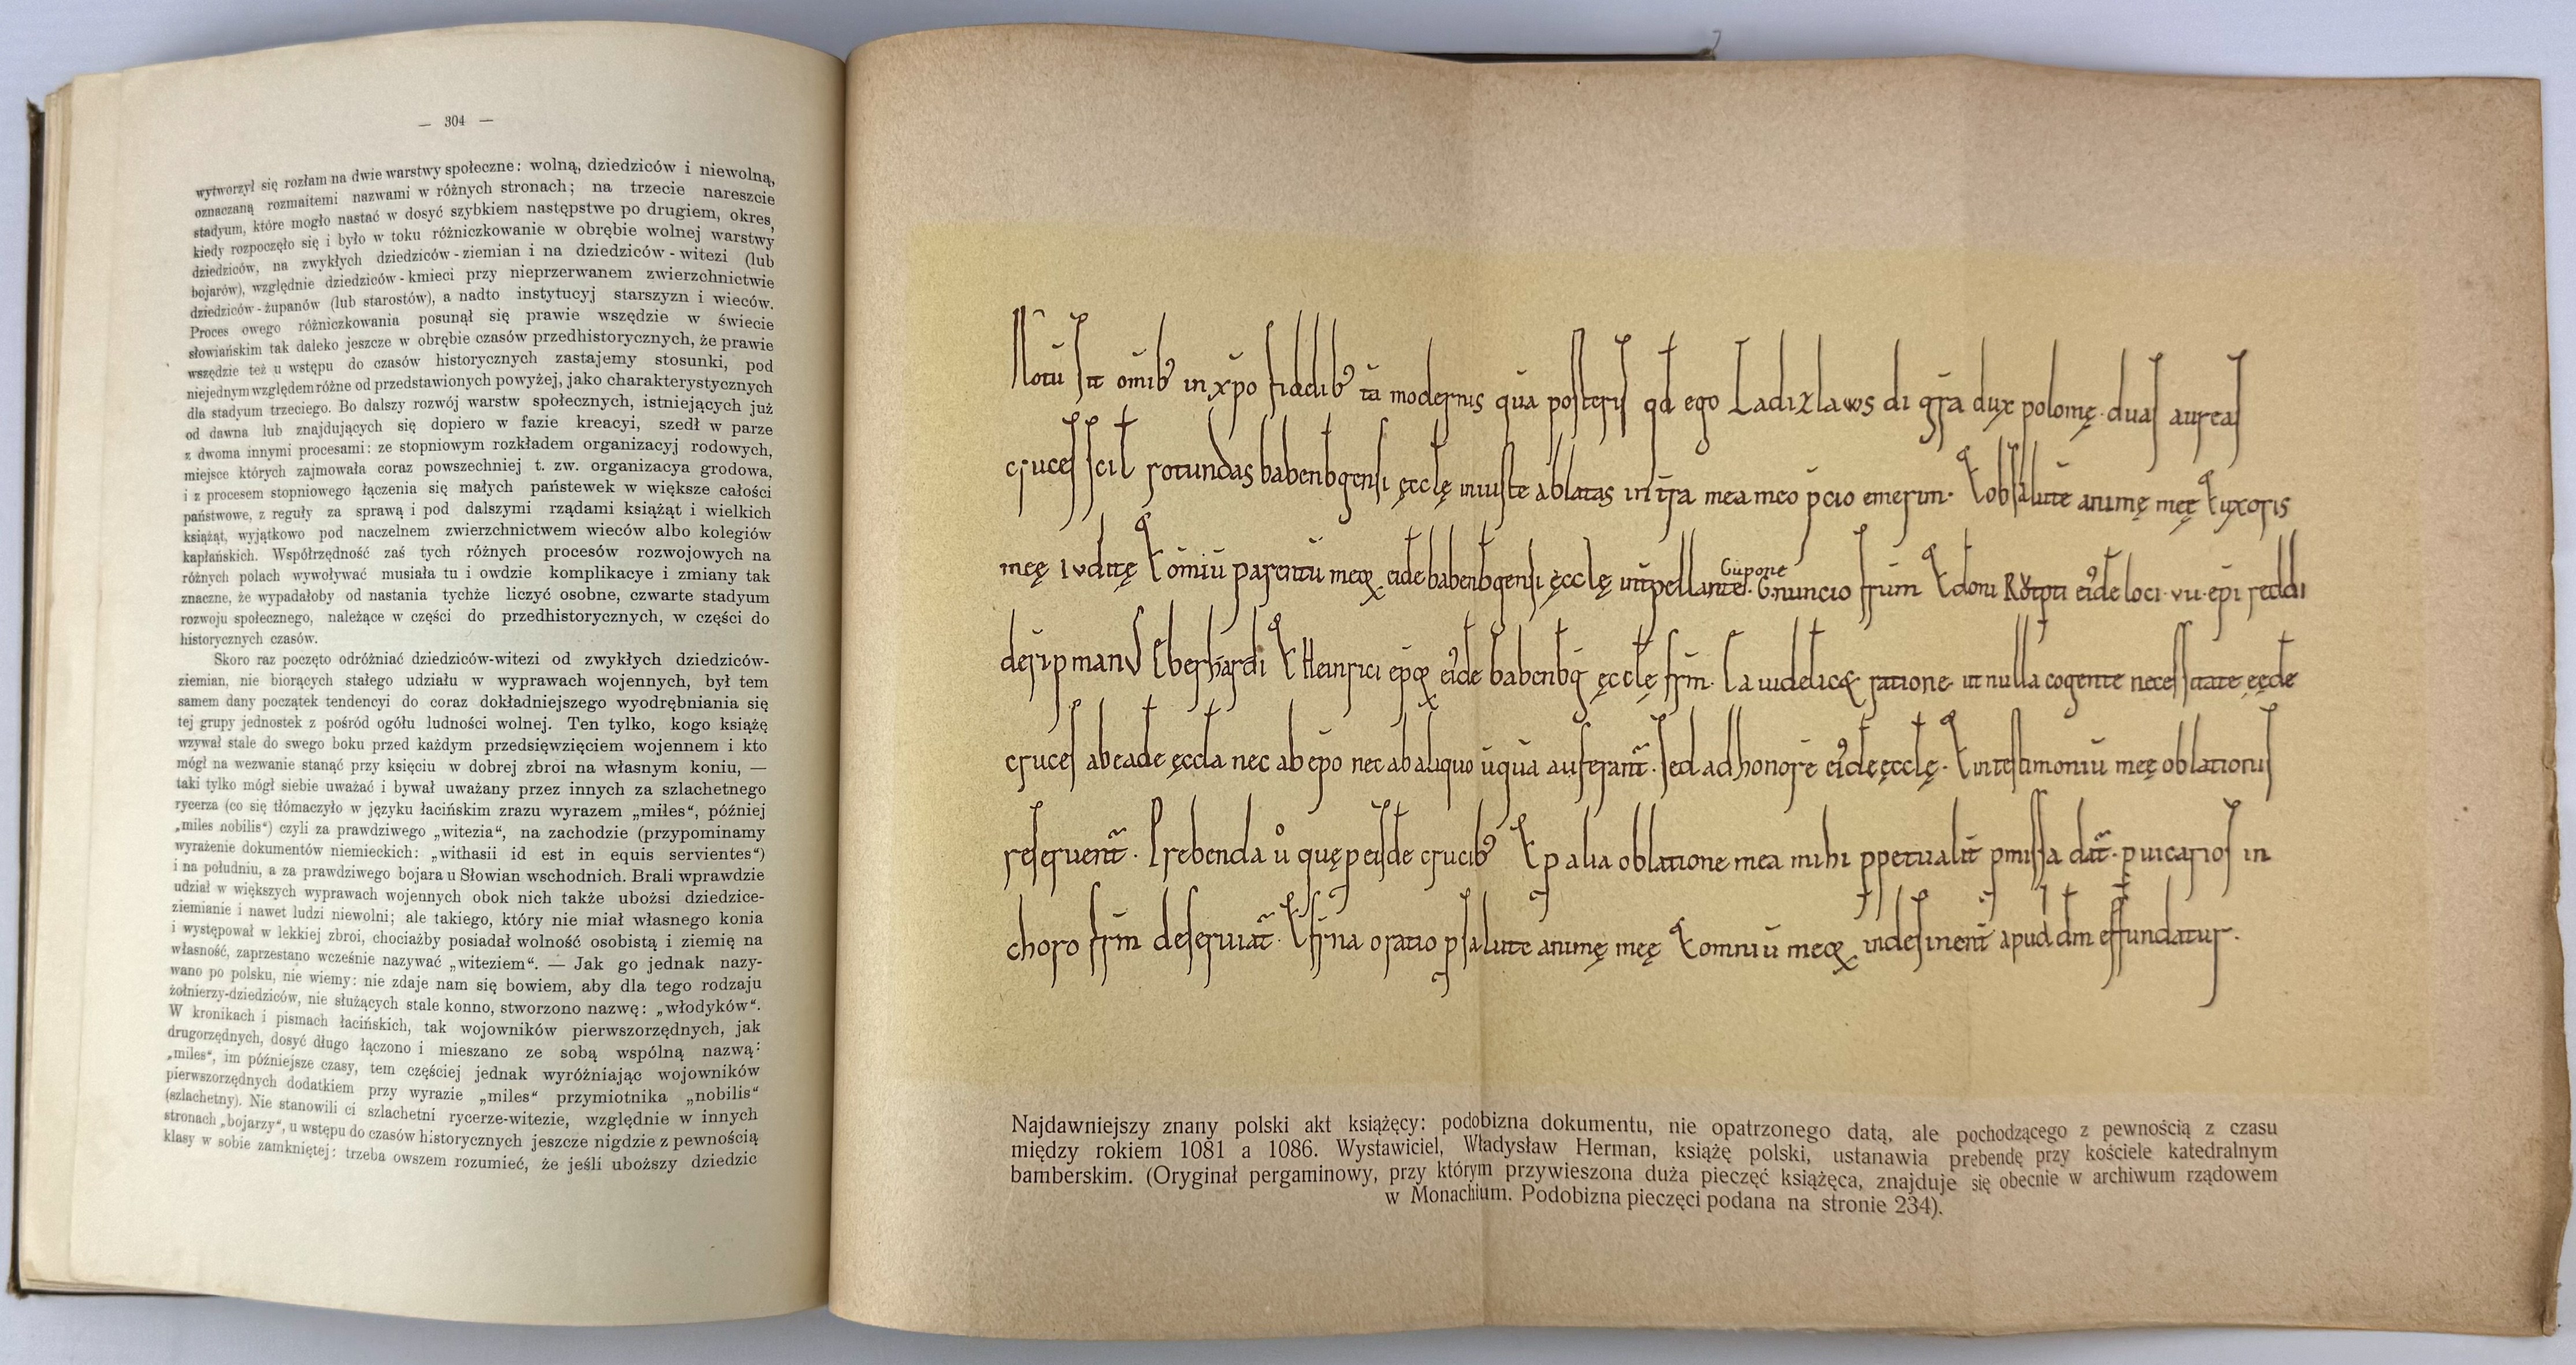 — 304 —
wytworzył się rozłam na dwie warstwy społeczne: wolną, dziedziców i niewolną,
oznaczaną rozmaitemi nazwami w różnych stronach; na trzecie nareszcie
stadyum, które mogło nastać w dosyć szybkiem następstwe po drugiem, okres,
kiedy rozpoczęło się i było w toku różniczkowanie w obrębie wolnej warstwy
dziedziców, na zwykłych dziedziców-ziemian i na dziedziców-witezi (lub
bojarów), względnie dziedziców-kmieci przy nieprzerwanem zwierzchnictwie
dziedziców-żupanów (lub starostów), a nadto instytucyj starszyzn i wieców.
Proces owego różniczkowania posunął się prawie wszędzie w świecie
słowiańskim tak daleko jeszcze w obrębie czasów przedhistorycznych, że prawie
wszędzie też u wstępu do czasów historycznych zastajemy stosunki, pod
niejednym względem różne od przedstawionych powyżej, jako charakterystycznych
dla stadyum trzeciego. Bo dalszy rozwój warstw społecznych, istniejących już
od dawna lub znajdujących się dopiero w fazie kreacyi, szedł w parze
z dwoma innymi procesami: ze stopniowym rozkładem organizacyj rodowych,
miejsce których zajmowała coraz powszechniej t. zw. organizacya grodowa,
i z procesem stopniowego łączenia się małych państewek w większe całości
państwowe, z reguły za sprawą i pod dalszymi rządami książąt i wielkich
książąt, wyjątkowo pod naczelnem zwierzchnictwem wieców albo kolegiów
kapłańskich. Współrzędność zaś tych różnych procesów rozwojowych na
różnych polach wywoływać musiała tu i owdzie komplikacye i zmiany tak
znaczne, że wypadałoby od nastania tychże liczyć osobne, czwarte stadyum
rozwoju społecznego, należące w części do przedhistorycznych, w części do
historycznych czasów.
Skoro raz poczęto odróżniać dziedziców-witezi od zwykłych dziedziców-
ziemian, nie biorących stałego udziału w wyprawach wojennych, był tem
samem dany początek tendencyi do coraz dokładniejszego wyodrębniania się
tej grupy jednostek z pośród ogółu ludności wolnej. Ten tylko, kogo książę
wzywał stale do swego boku przed każdym przedsięwzięciem wojennem i kto
mógł na wezwanie stanąć przy księciu w dobrej zbroi na własnym koniu, —
taki tylko mógł siebie uważać i bywał uważany przez innych za szlachetnego
rycerza (co się tłómaczyło w języku łacińskim zrazu wyrazem „miles“, później
„miles nobilis“) czyli za prawdziwego „witezia“, na zachodzie (przypominamy
wyrażenie dokumentów niemieckich: „withasii id est in equis servientes“)
i na południu, a za prawdziwego bojara u Słowian wschodnich. Brali wprawdzie
udział w większych wyprawach wojennych obok nich także ubożsi dziedzice-
ziemianie i nawet ludzi niewolni; ale takiego, który nie miał własnego konia
i występował w lekkiej zbroi, chociażby posiadał wolność osobistą i ziemię na
własność, zaprzestano wcześnie nazywać „witeziem“. — Jak go jednak nazy-
wano po polsku, nie wiemy: nie zdaje nam się bowiem, aby dla tego rodzaju
żołnierzy-dziedziców, nie służących stale konno, stworzono nazwę: „włodyków“.
W kronikach i pismach łacińskich, tak wojowników pierwszorzędnych, jak
drugorzędnych, dosyć długo łączono i mieszano ze sobą wspólną nazwą:
„miles“, im późniejsze czasy, tem częściej jednak wyróżniając wojowników
pierwszorzędnych dodatkiem przy wyrazie „miles“ przymiotnika „nobilis“
(szlachetny). Nie stanowili ci szlachetni rycerze-witezie, względnie w innych
stronach „bojarzy“, u wstępu do czasów historycznych jeszcze nigdzie z pewnością
klasy w sobie zamkniętej: trzeba owszem rozumieć, że jeśli uboższy dziedzic
Notū sit omib' in xp̄o fidelib' tā modernis quā posteris qd ego Ladizlaws di grā dux polonię duas aureas
cruces scil rotundas babenbgensi ęcclę iniuste ablatas in trā mea meo pcio emerim. & ob salutē animę meę & uxoris
meę Iuditę & omiū parentū meoꝝ eidē babenbgensi ęcclę intpellante Cupone nuncio frūm & doni Rōtpti eiꝰde loci vii epi reddi
deri p manꝰ Eberhardi & Heinrici epoꝝ eiꝰde babenbg ęcclę frm. Ea uidelicꝫ ratione ut nulla cogente necessitate ęęde
cruces ab eade ęccla nec ab epō nec ab aliquo ūquā auferant. sed ad honorē eiꝰde ęcclę & in testimoniū meę oblationis
reseruent. Prebenda ů quę p eisde crucib' & p alia oblatione mea mihi ppetualit pmissa dat p uicarios in
choro frm deseruiat & frna oratio p salute animę meę & omniū meoꝝ indesinent apud dm effundatur.
Najdawniejszy znany polski akt książęcy: podobizna dokumentu, nie opatrzonego datą, ale pochodzącego z pewnością z czasu
między rokiem 1081 a 1086. Wystawiciel, Władysław Herman, książę polski, ustanawia prebendę przy kościele katedralnym
bamberskim. (Oryginał pergaminowy, przy którym przywieszona duża pieczęć książęca, znajduje się obecnie w archiwum rządowem
w Monachium. Podobizna pieczęci podana na stronie 234).